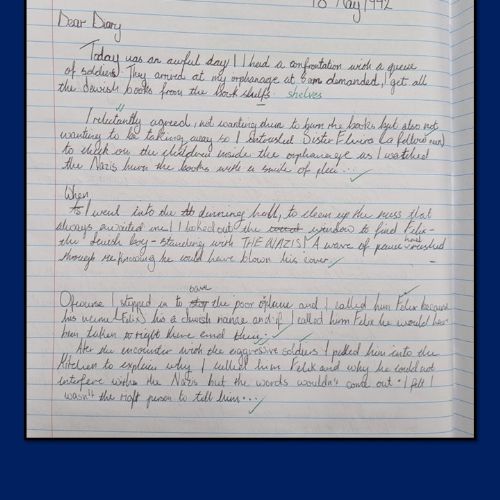 10 May 1942
Dear Diary
Today was an awful day! I had a confrontation with a queue
of soldiers. They arrived at my orphanage at 5am demanded, I get all
the Jewish books from the book shelfs shelves
I reluctantly agreed, not wanting them to burn the books but also not
wanting to be taking away so I entrusted Sister Elvira (a fellow nun)
to check on the children inside the orphanage as I watched
the Nazis burn the books with a smile of
When
As I went into the dinning hall, to clean up the mess that
always awaited me I looked out the window to find Felix-
the Jewish boy - standing with THE NAZIS! A wave of panic had rushed
through me knowing he could have blown his cover
Ofcourse I stepped in to save the poor and I called him Felix because
his name (Felix) his a Jewish name and if I called him Felix he would
been taken to right there and then.
After the encounter with the aggressive soldiers I pulled him into the
Kitchen to explain why I called him Felix and why he could not
interfere with the Nazis but the words wouldn't come out. I felt I
wasn't the right person to tell him...